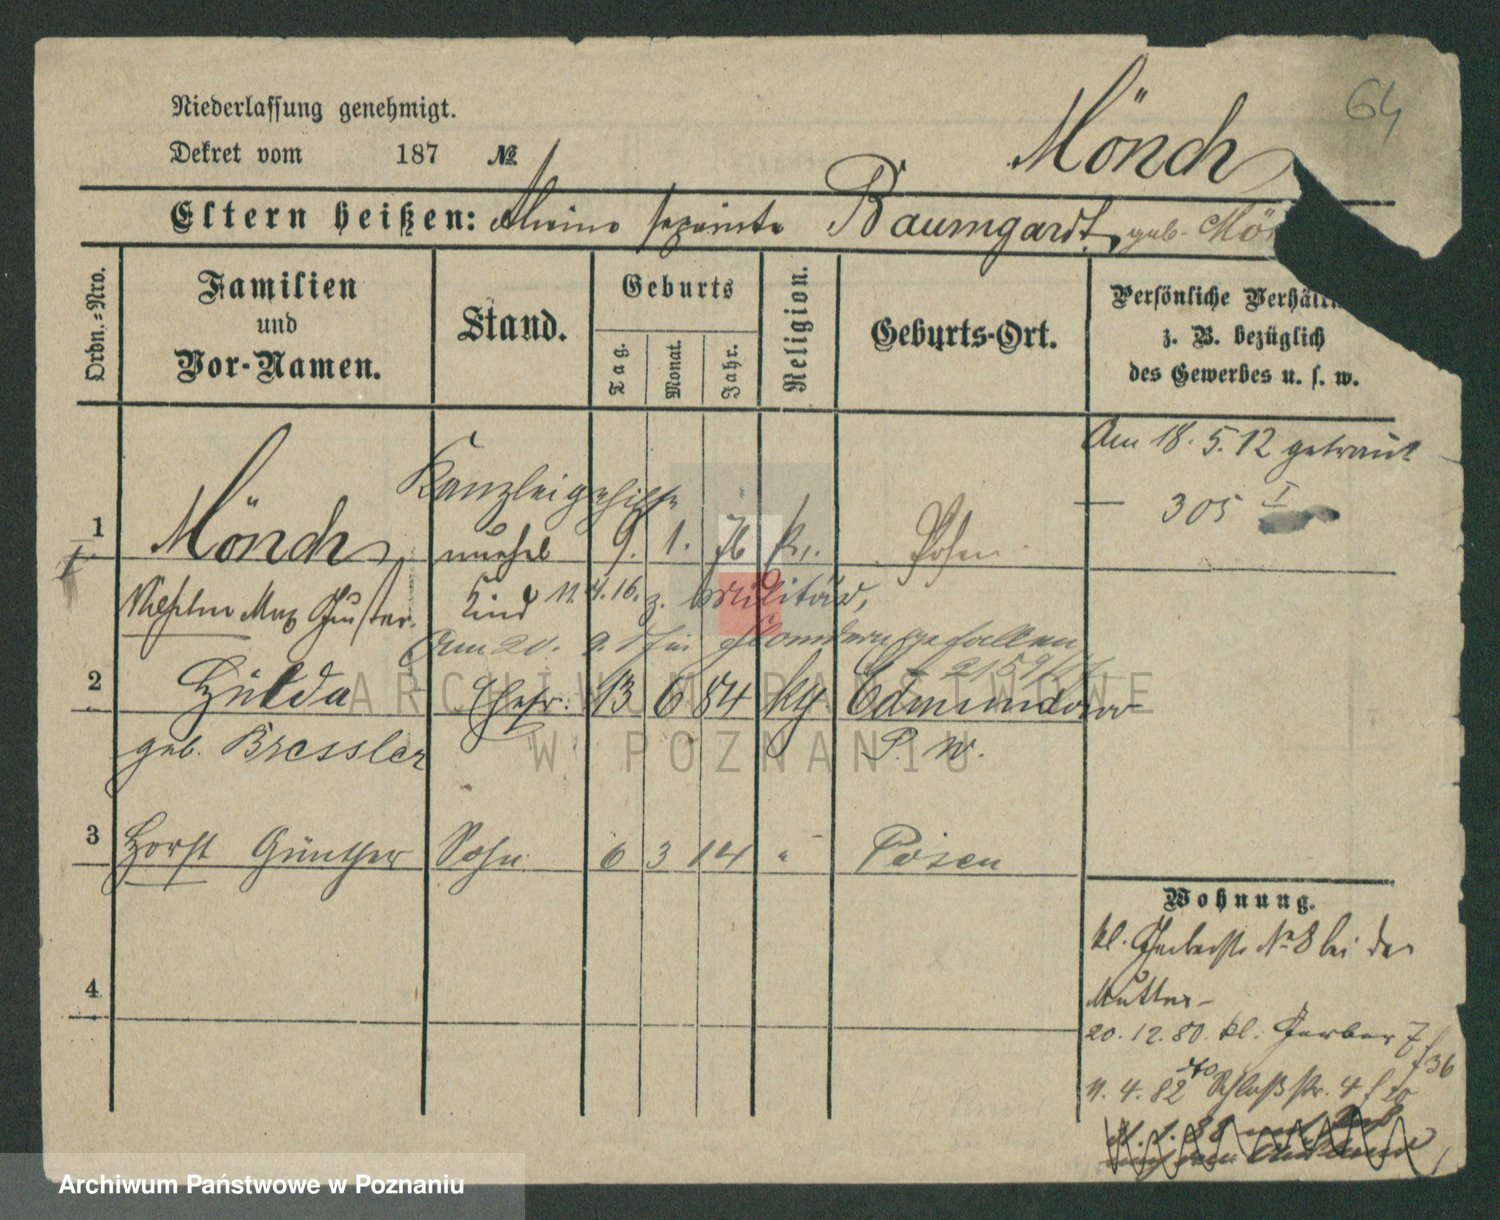 64
Niederlassung genehmigt.
Mönch
Dekret vom 187 №
Eltern heißen: Baumgardt, geb. Mön
Ordn.-Nro.
Familien und Vor-Namen.
Stand.
Geburts
Tag.
Monat.
Jahr.
Religion.
Geburts-Ort.
Persönliche Verhält
z. B. bezüglich
des Gewerbes u. s. w.
Am 18. 5. 12 getraut
305 I
Kanzleigehilfe
1 Mönch 9. 1. 76 Posen
Wilhelm Max Gustav
Kind 11. 4. 16. z. Militär,
Am 20. in Flandern gefallen
2 Hulda Ehefr. 13 6 84 kg Edmundowo
geb. Bressler P. W.
3 Horst Günther Sohn 6 3 14 " Posen
4
Wohnung.
kl. Gerberstr. No 8 bei der
Mutter
20. 12. 80. kl. Gerber 7
f 36
11. 4. 82 Schloßstr. 4
ARCHIWUM PAŃSTWOWE
W POZNANIU
Archiwum Państwowe w Poznaniu